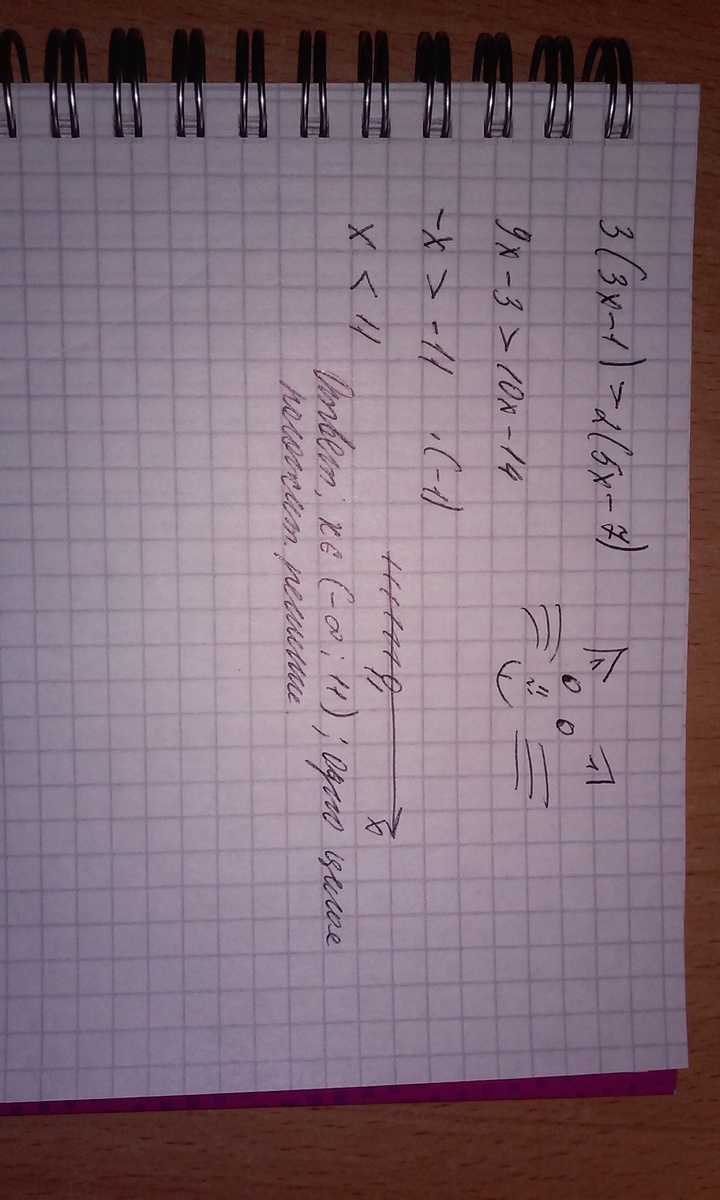 3(3x-1)>2(5x-7)
9x-3>10x-14
-x>-11 ·(-1)
x<11
11
x
Ответ: x∈(-∞; 11); одно целое
положит. решение.